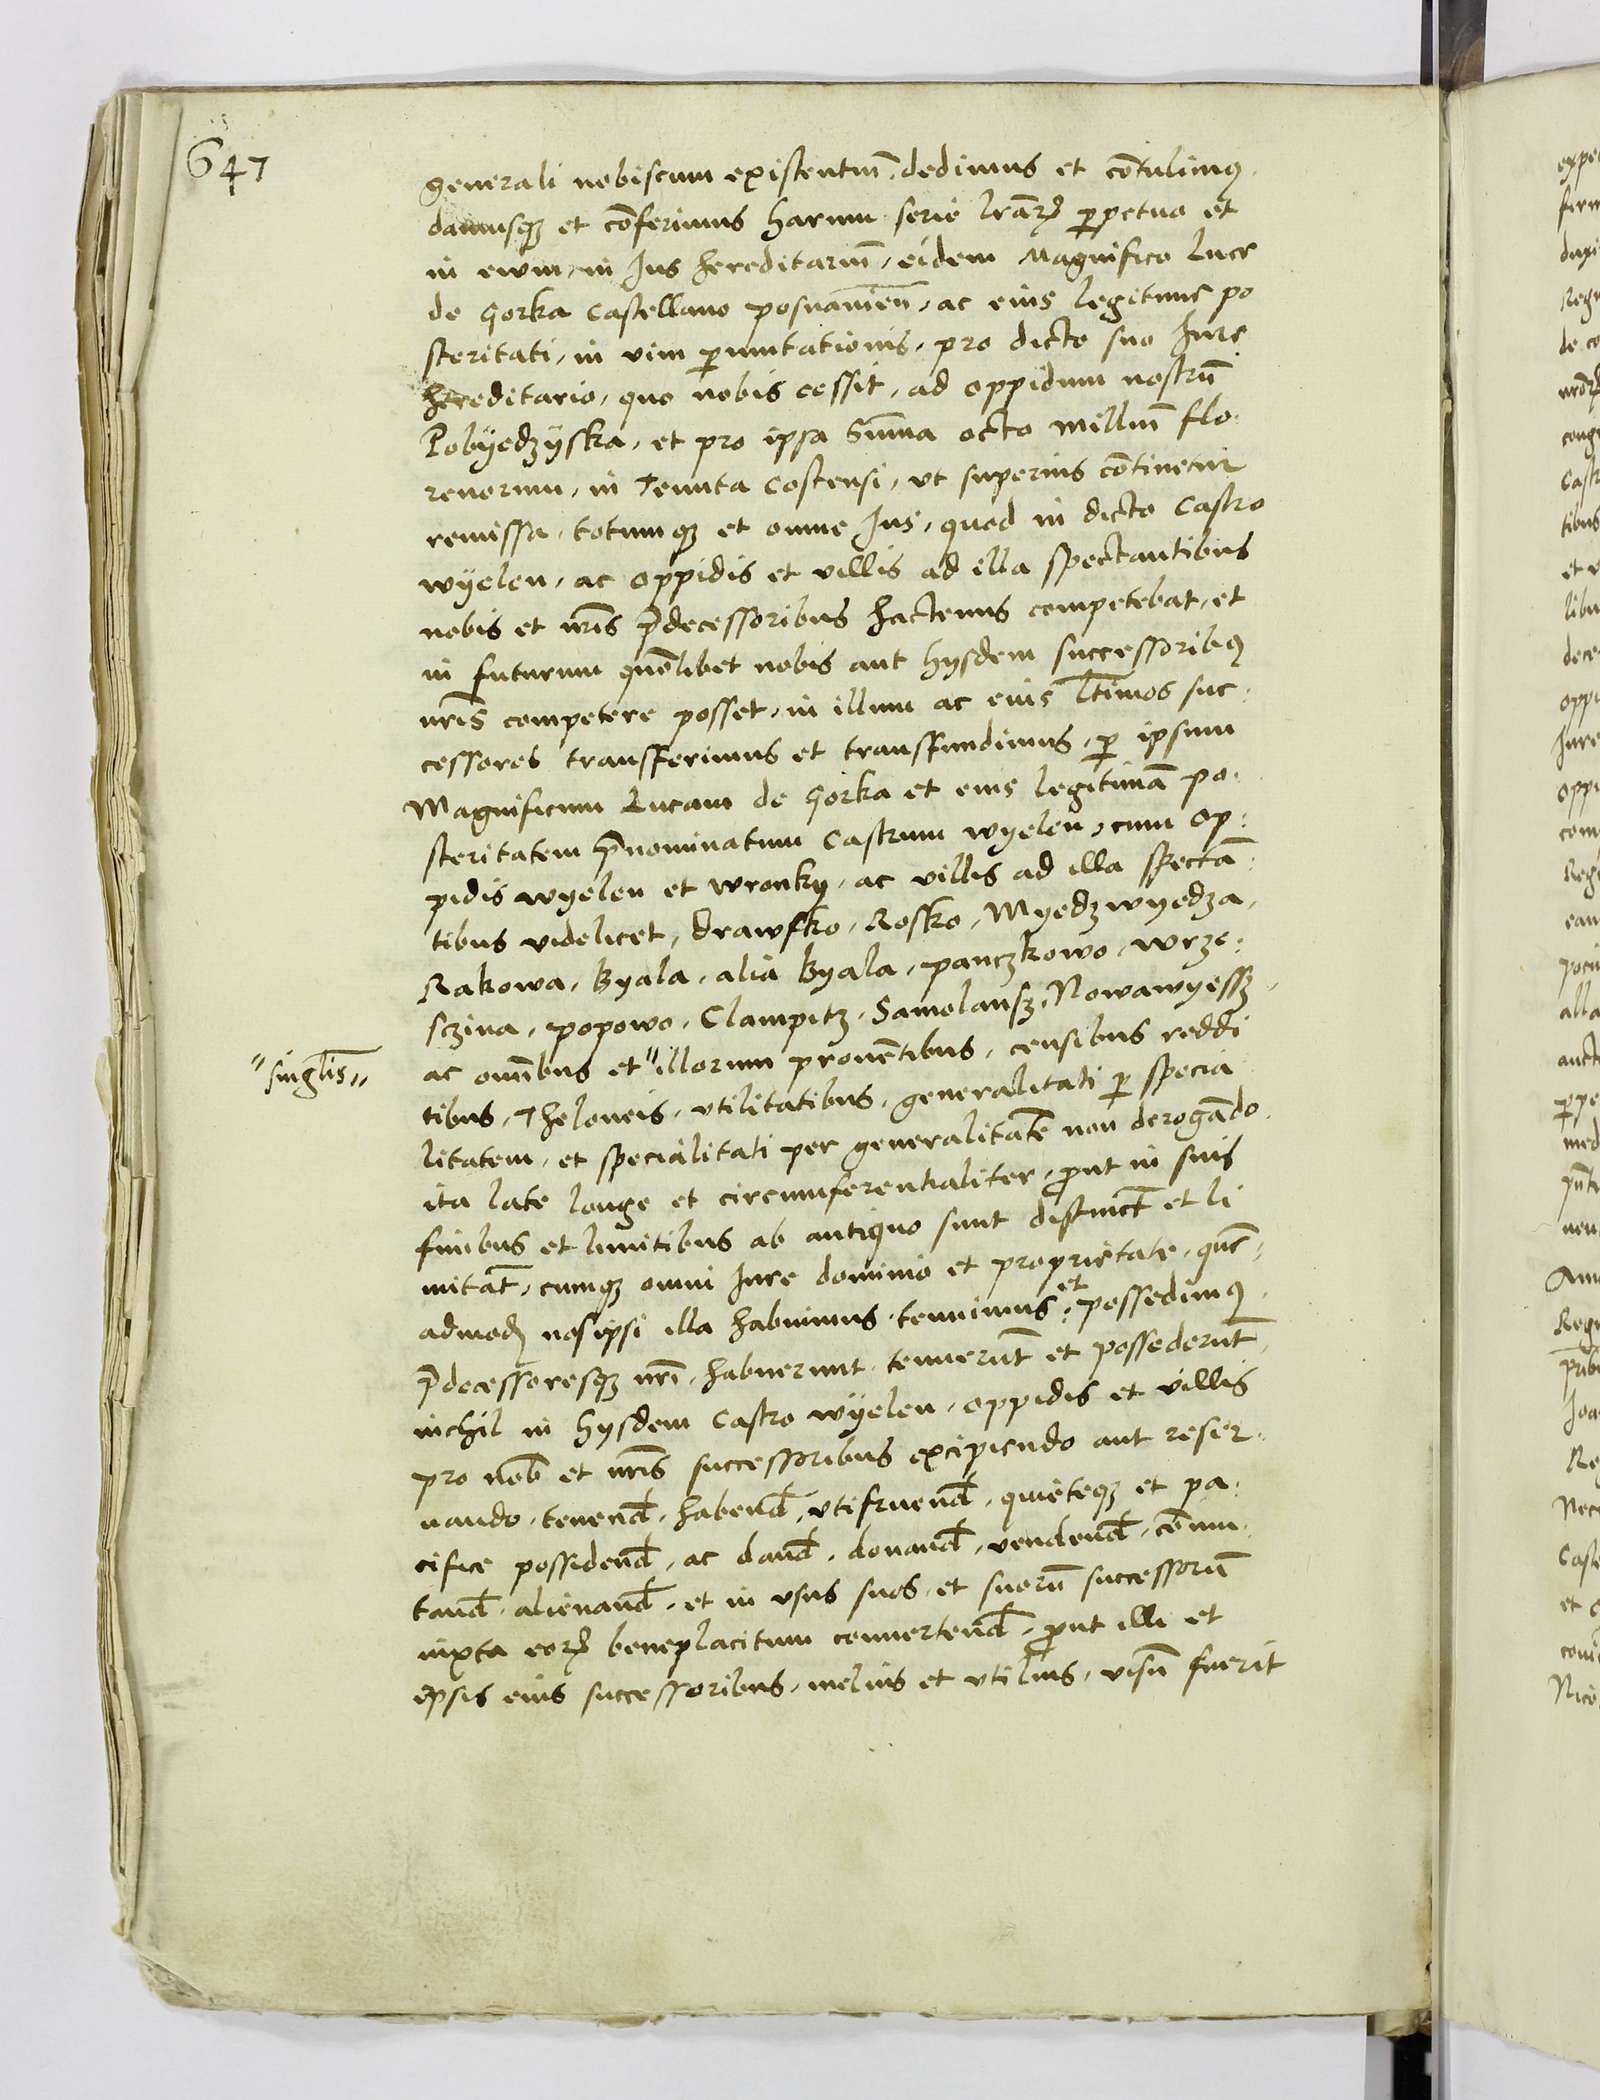 647
generali nobiscum existentiū. dedimus et cōtulimꝰ.
damusqꝫ et cōferimus harum serie lrāꝝ ꝑpetuo et
in ewm, in Jus hereditariū, eidem Magnifico Luce
de Gorka Castellano posnaniēn̄, ac eius legitime po
steritati, in vim ꝑmutationis, pro dicto suo Jure
hereditario, quo nobis cessit, ad oppidum nostrū
Pobyedzyska, et pro ipsa Sūma octo milliū flo-
renorum, in Tenuta Costensi, vt superius cōtinetur
remissa, totumqꝫ et omne Jus, quod in dicto Castro
wyelen, ac oppidis et villis ad illa spectantibus
nobis et nrīs p̄decessoribus hactenus competebat, et
in futurum quōlibet nobis aut hysdem successoribꝰ
nrīs competere posset, in illum ac eius ltīmos suc-
cessores transferimus et transfundimus, ꝑ ipsum
Magnificum Lucam de Gorka et eius legitimā po-
steritatem p̄nominatum Castrum wyelen, cum op-
pidis wyelen et wronky, ac villis ad illa spectā-
tibus videlicet, Drawsko, Rosko, Myedzwyedza,
Rakowa, Byala, alia Byala, panczkowo, wrze-
sczina, popowo, Clampitz, Samolansz, Nowawyessz,
ac omībus et " illorum prouētibus, censibus reddi
"singlīs"
tibus, Theloneis, vtilitatibus, generalitati ꝑ specia
litatem, et specialitati per generalitatē non derogādo.
ita late longe et circumferentialiter, ꝓut in suis
finibus et limitibus ab antiquo sunt distinct̄ et li
mitat̄, cumqꝫ omni Jure dominio et proprietate, quē-
admoꝺ nos ipsi illa habuimus, tenuimus et possedimꝰ.
p̄decessoresqꝫ nrī habuerunt, tenuerūt et possederūt,
nichil in hysdem Castro wyelen, oppidis et villis
pro nob̄ et nrīs successoribus excipiendo aut reser-
uando, tenend̄, habend̄, vtifruend̄, quieteqꝫ et pa-
cifice possidend̄, ac dand̄, donand̄, vendend̄, cōmu-
tand̄, alienand̄, et in vsus suos, et suorū successorū
iuxta eoꝝ beneplacitum conuertend̄, ꝓut illi et
ipsis eius successoribus, melius et vtilius, visū fuerit